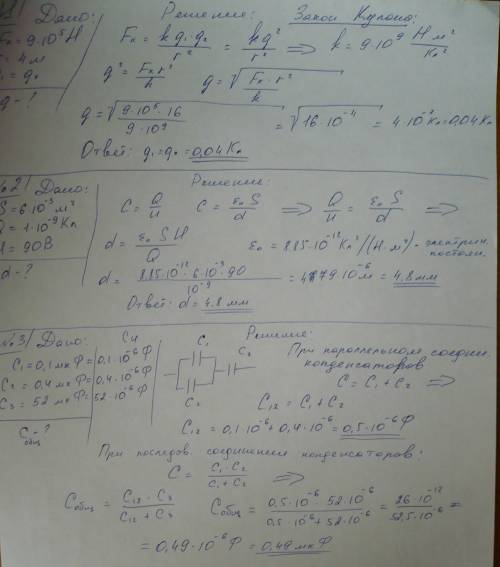 Дано: Решение: Закон Кулона:
Fк = 9·10⁵ Н
= 4м
q₁ = q₂
q - ?
Fк = k q₁·q₂ / r² = kq² / r² => k = 9·10⁹ Н м² / Кл²
q² = Fк r² / k q = √(Fк · r² / k)
q = √(9·10⁵ · 16 / 9·10⁹) = √(16·10⁻⁴) = 4·10⁻² Кл = 0,04 Кл
Ответ: q₁ = q₂ = 0,04 Кл
№2/ Дано: Решение:
S = 6·10⁻³ м²
Q = 1·10⁻⁹ Кл
U = 90В
d - ?
C = Q / U C = ε₀ S / d => Q / U = ε₀ S / d =>
d = ε₀ S U / Q ε₀ = 8.85·10⁻¹² Кл² / (Н·м²) - электрич. постоян.
d = 8.85·10⁻¹² · 6·10⁻³ · 90 / 10⁻⁹ = 4779·10⁻⁶ м = 4.8 мм
Ответ: d = 4.8 мм
№3/ Дано: Си Решение:
C₁ = 0,1 мкФ = 0,1·10⁻⁶ Ф
C₂ = 0,4 мкФ = 0,4·10⁻⁶ Ф
C₃ = 52 мкФ = 52·10⁻⁶ Ф
Cобщ - ?
C₁
C₃
C₂
При параллельном соедин.
конденсаторов
C = C₁ + C₂ =>
C₁₂ = C₁ + C₂
C₁₂ = 0,1·10⁻⁶ + 0,4·10⁻⁶ = 0,5·10⁻⁶ Ф
При последов. соединении конденсаторов:
C = C₁·C₂ / C₁+C₂ =>
Cобщ = C₁₂·C₃ / C₁₂+C₃ Cобщ = 0,5·10⁻⁶ · 52·10⁻⁶ / 0,5·10⁻⁶ + 52·10⁻⁶ = 26·10⁻¹² / 52,5·10⁻⁶ =
= 0,49·10⁻⁶ Ф = 0,49 мкФ